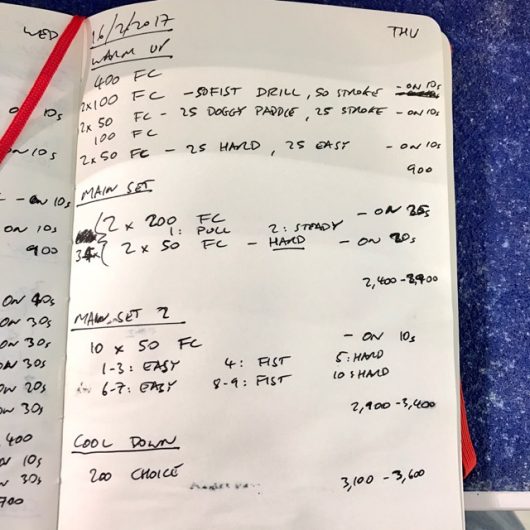 WED
ON 10s
ON 10s
- ON 10s
ON 10s
900
ON 40s
ON 30s
ON 30s
ON 30s
ON 20s
ON 30s
400
ON 10s
ON 30s
700
16/2/2017 THU
WARM UP
400 FC
2x100 FC - 50 FIST DRILL, 50 STROKE - ON 10s
2x 50 FC - 25 DOGGY PADDLE, 25 STROKE - ON 10s
100 FC
2x 50 FC - 25 HARD, 25 EASY - ON 10s
900
MAIN SET
2 x 200 FC - ON 35s
1: PULL 2: STEADY
2 x 50 FC - HARD - ON 20s
2,400 - 2,900
MAIN SET 2
10 x 50 FC - ON 10s
1-3: EASY 4: FIST 5: HARD
6-7: EASY 8-9: FIST 10: HARD
2,900 - 3,400
COOL DOWN
200 CHOICE 3,100 - 3,600